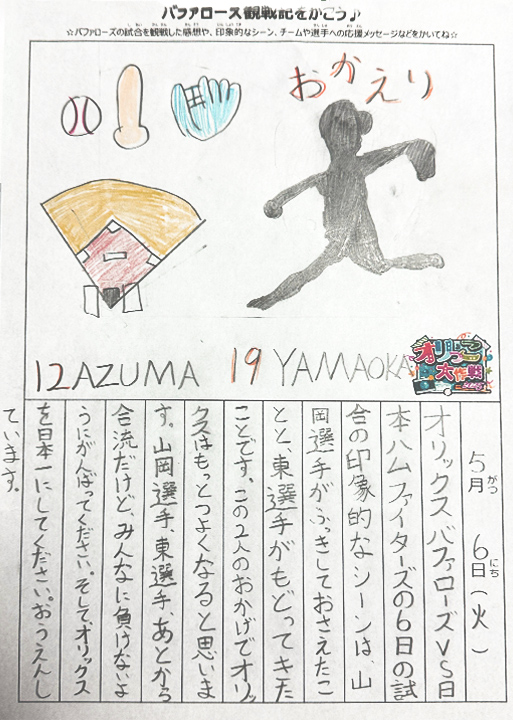 バファローズ観戦記をかこう♪
☆バファローズの試合を観戦した感想や、印象的なシーン、チームや選手への応援メッセージなどをかいてね☆
おかえり
12 AZUMA 19 YAMAOKA
オリっこ
大作戦
5月 6日(火)
がつ にち
オリックスバファローズVS日
本ハムファイターズの6日の試
合の印象的なシーンは、山
岡選手がふっきしておさえたこ
とと、東選手がもどってきた
ことです。この2人のおかげでオリッ
クスはもっとつよくなると思いま
す。山岡選手、東選手、あとから
合流だけど、みんなに負けないよ
うにがんばってください。そして、オリックス
を日本一にしてください。おうえんし
ています。